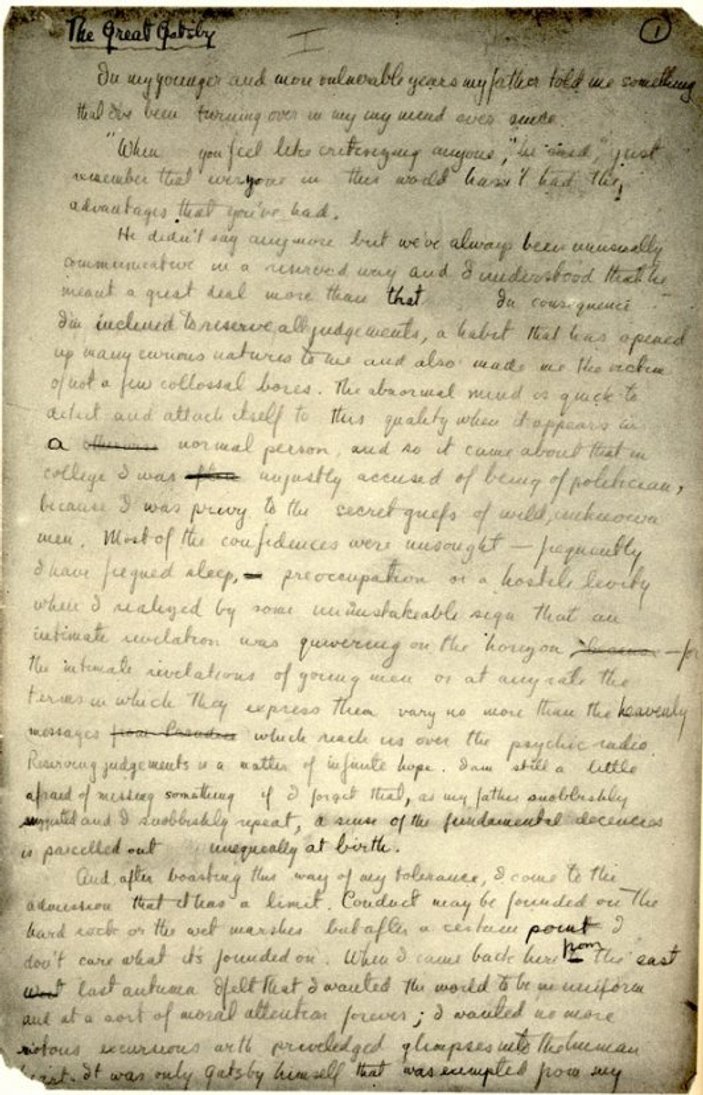 The Great Gatsby
I
1
In my younger and more vulnerable years my father told me something
that I've been turning over in my my mind ever since.
"When you feel like criticizing anyone," he said, "just
remember that everyone in this world hasn't had the
advantages that you've had.
He didn't say anymore but we've always been unusually
communicative in a reserved way and I understood that he
meant a great deal more than that. In consequence
I'm inclined to reserve all judgements, a habit that has opened
up many curious natures to me and also made me the victim
of not a few collossal bores. The abnormal mind is quick to
detect and attach itself to this quality when it appears in
a otherwise normal person, and so it came about that in
college I was often unjustly accused of being of politician,
because I was privy to the secret griefs of wild, unknown
men. Most of the confidences were unsought — frequently
I have fiegned sleep, preoccupation or a hostile levity
when I realized by some unmistakeable sign that an
intimate revelation was quivering on the horizon — for
the intimate revelations of young men or at any rate the
terms in which they express them vary no more than the heavenly
messages from which reach us over the psychic radio.
Reserving judgements is a matter of infinite hope. I am still a little
afraid of missing something if I forget that, as my father snobbishly
suggested and I snobbishly repeat, a sense of the fundamental decencies
is parcelled out unequally at birth.
And, after boasting this way of my tolerance, I come to the
admission that it has a limit. Conduct may be founded on the
hard rock or the wet marshes but after a certain point I
don't care what it's founded on. When I came back here from the east
west last autumn I felt that I wanted the world to be in uniform
and at a sort of moral attention forever; I wanted no more
riotous excursions with priveledged glimpses into the human
heart. It was only Gatsby himself that was exempted from my